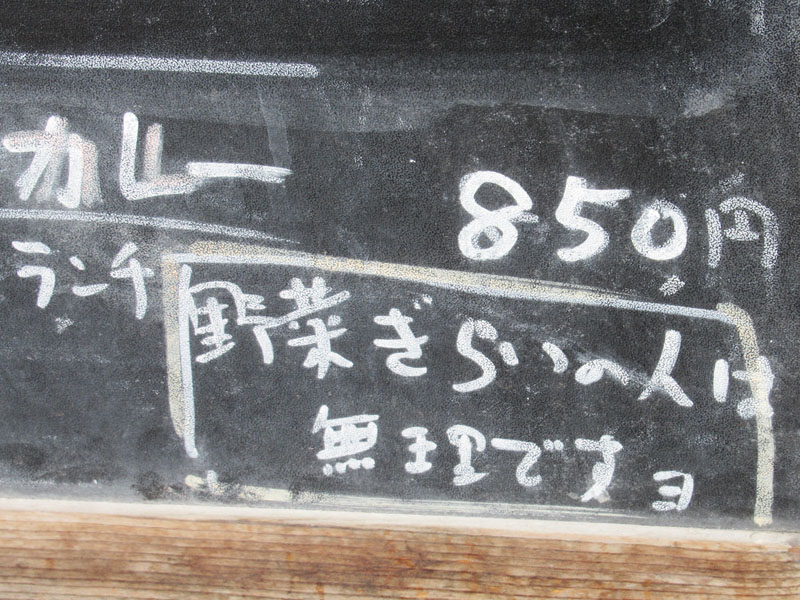 カレー 850円
ランチ
野菜ぎらいの人は
無理ですョ